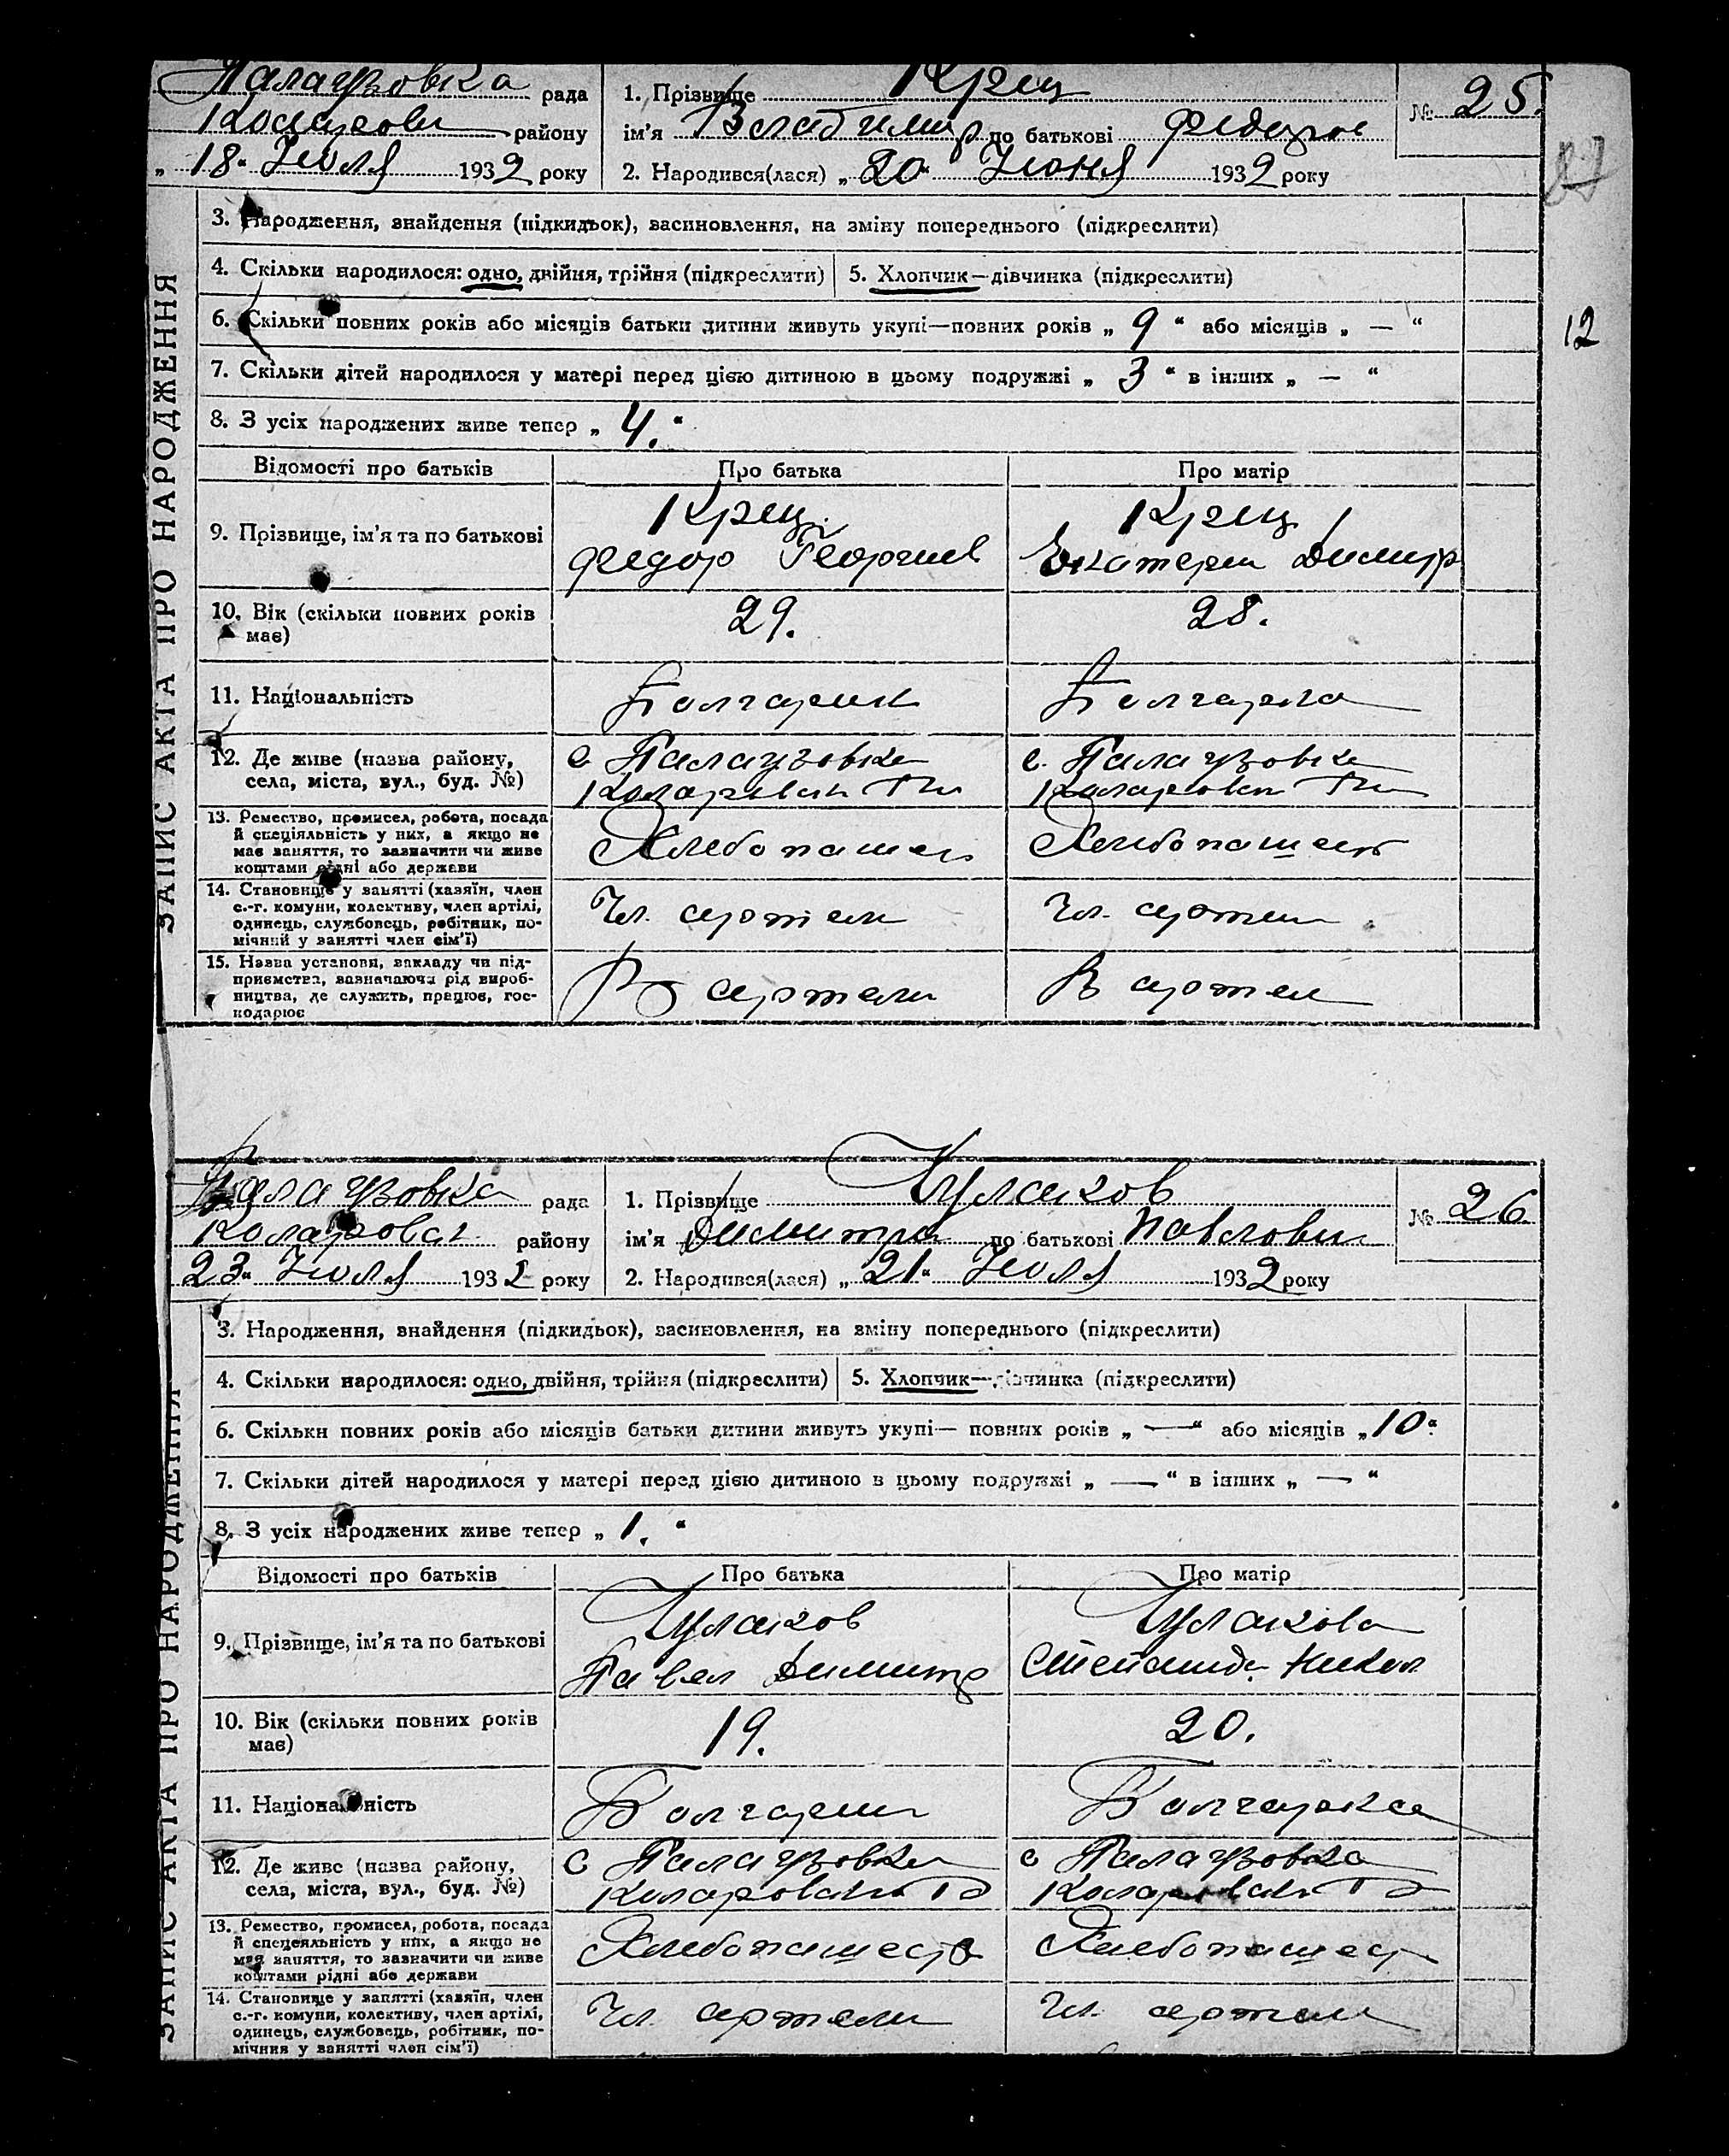 Палаузовка рада
района
„ 18 “ Июля 1932 року
1. Прізвище Крец
ім’я Владимир по батькові Федоров
2. Народився(лася) „ 20 “ Июня 1932 року
№ 25.
27
ЗАПИС АКТА ПРО НАРОДЖЕННЯ
3. Народження, знайдення (підкидьок), засиновлення, на зміну попереднього (підкреслити)
4. Скільки народилося: одно, двійня, трійня (підкреслити) 5. Хлопчик—дівчинка (підкреслити)
6. Скільки повних років або місяців батьки дитини живуть укупі—повних років „ 9 “ або місяців „ — “
12
7. Скільки дітей народилося у матері перед цією дитиною в цьому подружжі „ 3 “ в інших „ — “
8. З усіх народжених живе тепер „ 4. “
Відомості про батьків Про батька Про матір
9. Прізвище, ім’я та по батькові
Крец Крец
Федор Георгиев Екатерин Димитр
10. Вік (скільки повних років має)
29. 28.
11. Національність
Болгарин Болгарка
12. Де живе (назва району,
села, міста, вул., буд. №)
с Палаузовка с. Палаузовка
13. Ремество, промисел, робота, посада
й спеціяльність у них, а якщо не
має заняття, то зазначити чи живе
коштами рідні або держави
Хлебопашец Хлебопашест
14. Становище у занятті (хазяїн, член
с.-г. комуни, колективу, член артілі,
одинець, службовець, робітник, по-
мічний у занятті член сім’ї)
Чл. артели Чл. артели
15. Назва установи, закладу чи під-
приємства, зазначаючи рід вироб-
ництва, де служить, працює, гос-
подарює
В артели В артел
Палаузовка рада
Коларовск. району
23 “ Июля 1932 року
1. Прізвище Кулаков
ім’я Димитрий по батькові Павлович
2. Народився(лася) „ 21 “ Июля 1932 року
№ 26.
ЗАПИС АКТА ПРО НАРОДЖЕННЯ
3. Народження, знайдення (підкидьок), засиновлення, на зміну попереднього (підкреслити)
4. Скільки народилося: одно, двійня, трійня (підкреслити) 5. Хлопчик—дівчинка (підкреслити)
6. Скільки повних років або місяців батьки дитини живуть укупі— повних років „ — “ або місяців „ 10 “
7. Скільки дітей народилося у матері перед цією дитиною в цьому подружжі „ — “ в інших „ — “
8. З усіх народжених живе тепер „ 1. “
Відомості про батьків Про батька Про матір
9. Прізвище, ім’я та по батькові
Кулаков Кулакова
Павел Димитр Степанида Никол
10. Вік (скільки повних років
має)
19. 20.
11. Національність
Болгарин Болгарка
12. Де живе (назва району,
села, міста, вул., буд. №)
с Палаузовка с Палаузовка
13. Ремество, промисел, робота, посада
й спецеяльність у них, а якщо не
має заняття, то зазначити чи живе
коштами рідні або держави
Хлебопашест Хлебопашест
14. Становище у занятті (хазяїн, член
с.-г. комуни, колективу, член артілі,
одинець, службовець, робітник, по-
мічния у занятті член сім’ї)
Чл артели Чл. артели